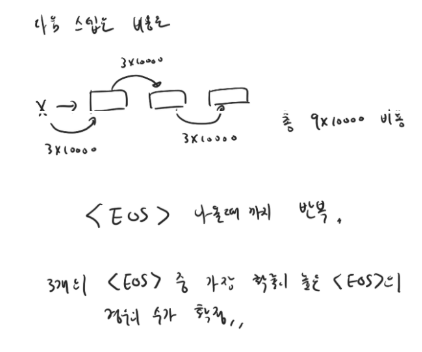 다음 스텝은 비용은
3×10000
X →
3×10000
3×10000
총 9×10000 비용
<EOS> 나올때 까지 반복.
3개의 <EOS> 중 가장 확률이 높은 <EOS>의
경우의 수가 확정,,